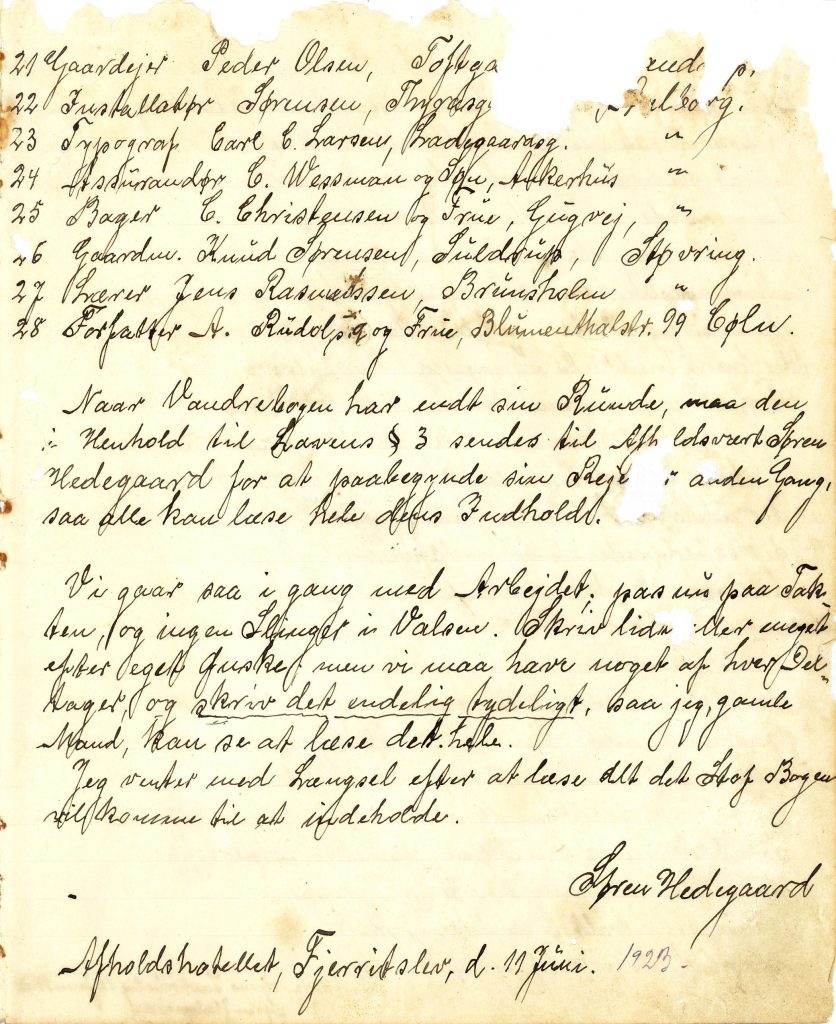 21 Gaardejer Peder Olsen, Toftga p.
22 Installatør Sørensen, Aalborg.
23 Typograf Carl C. Larsen, Ladegaardsg. "
24 Assurandør C. Wessman og Søn, Ankerhus "
25 Bager C. Christensen og Frue, Gugvej, "
26 Gaardm. Knud Sørensen, Suldrup, Støvring.
27 Lærer Jens Rasmussen, Brunsholm "
28 Forfatter A. Rudolph og Frue, Blumenthalstr. 99 Cøln.
Naar Vandrebogen har endt sin Runde, maa den
i Henhold til Lavens § 3 sendes til Afh ldsvært Søren
Hedegaard for at paabegynde sin Rejs anden Gang,
saa alle kan læse hele dens Indhold.
Vi gaar saa i gang med Arbejdet; pas nu paa Tak-
ten, og ingen Slinger i Valsen. Skriv lidt ller meget
efter eget Ønske, men vi maa have noget af hver Del-
tager, og skriv det endelig tydeligt, saa jeg, gamle
Mand, kan se at læse det hele.
Jeg venter med Længsel efter at læse alt det Stof Bogen
vil komme til at indeholde.
Søren Hedegaard
Afholdshotellet, Fjerritslev, d. 11 Juni. 1923.